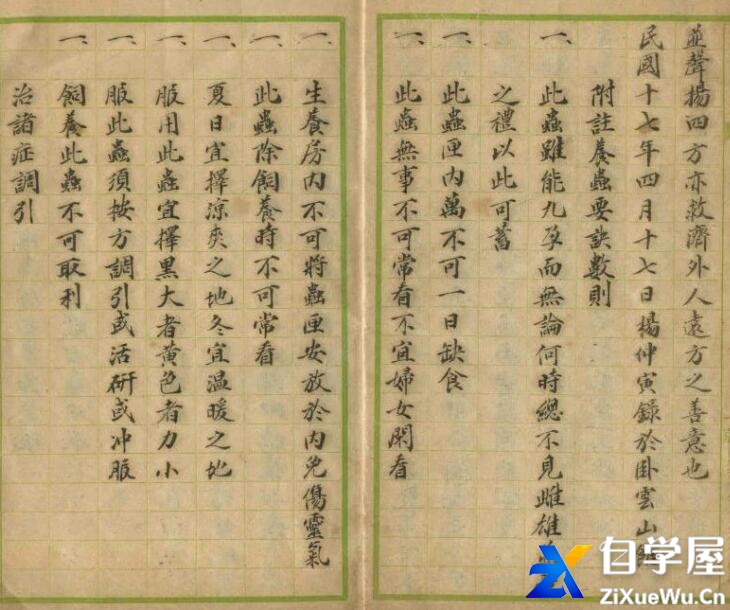 並聲揚四方亦救濟外人遠方之善意也
民國十七年四月十七日楊仲寅錄於卦雲山
附註養蟲要訣數則
一、此蟲雖能九孕而無論何時總不見雌雄
之禮以此可蓄
一、此蟲匣内萬不可一日缺食
一、此蟲無事不可常看不宜婦女閑看
一、生養房内不可將蟲匣安放於内免傷靈氣
一、此蟲除飼養時不可常看
一、夏日宜擇涼爽之地冬宜温暖之地
一、服用此蟲宜擇黑大者黄色者力小
一、服此蟲須按方調引或活研或冲服
一、飼養此蟲不可取利
治諸症調引
自学屋
ZiXueWu.Cn